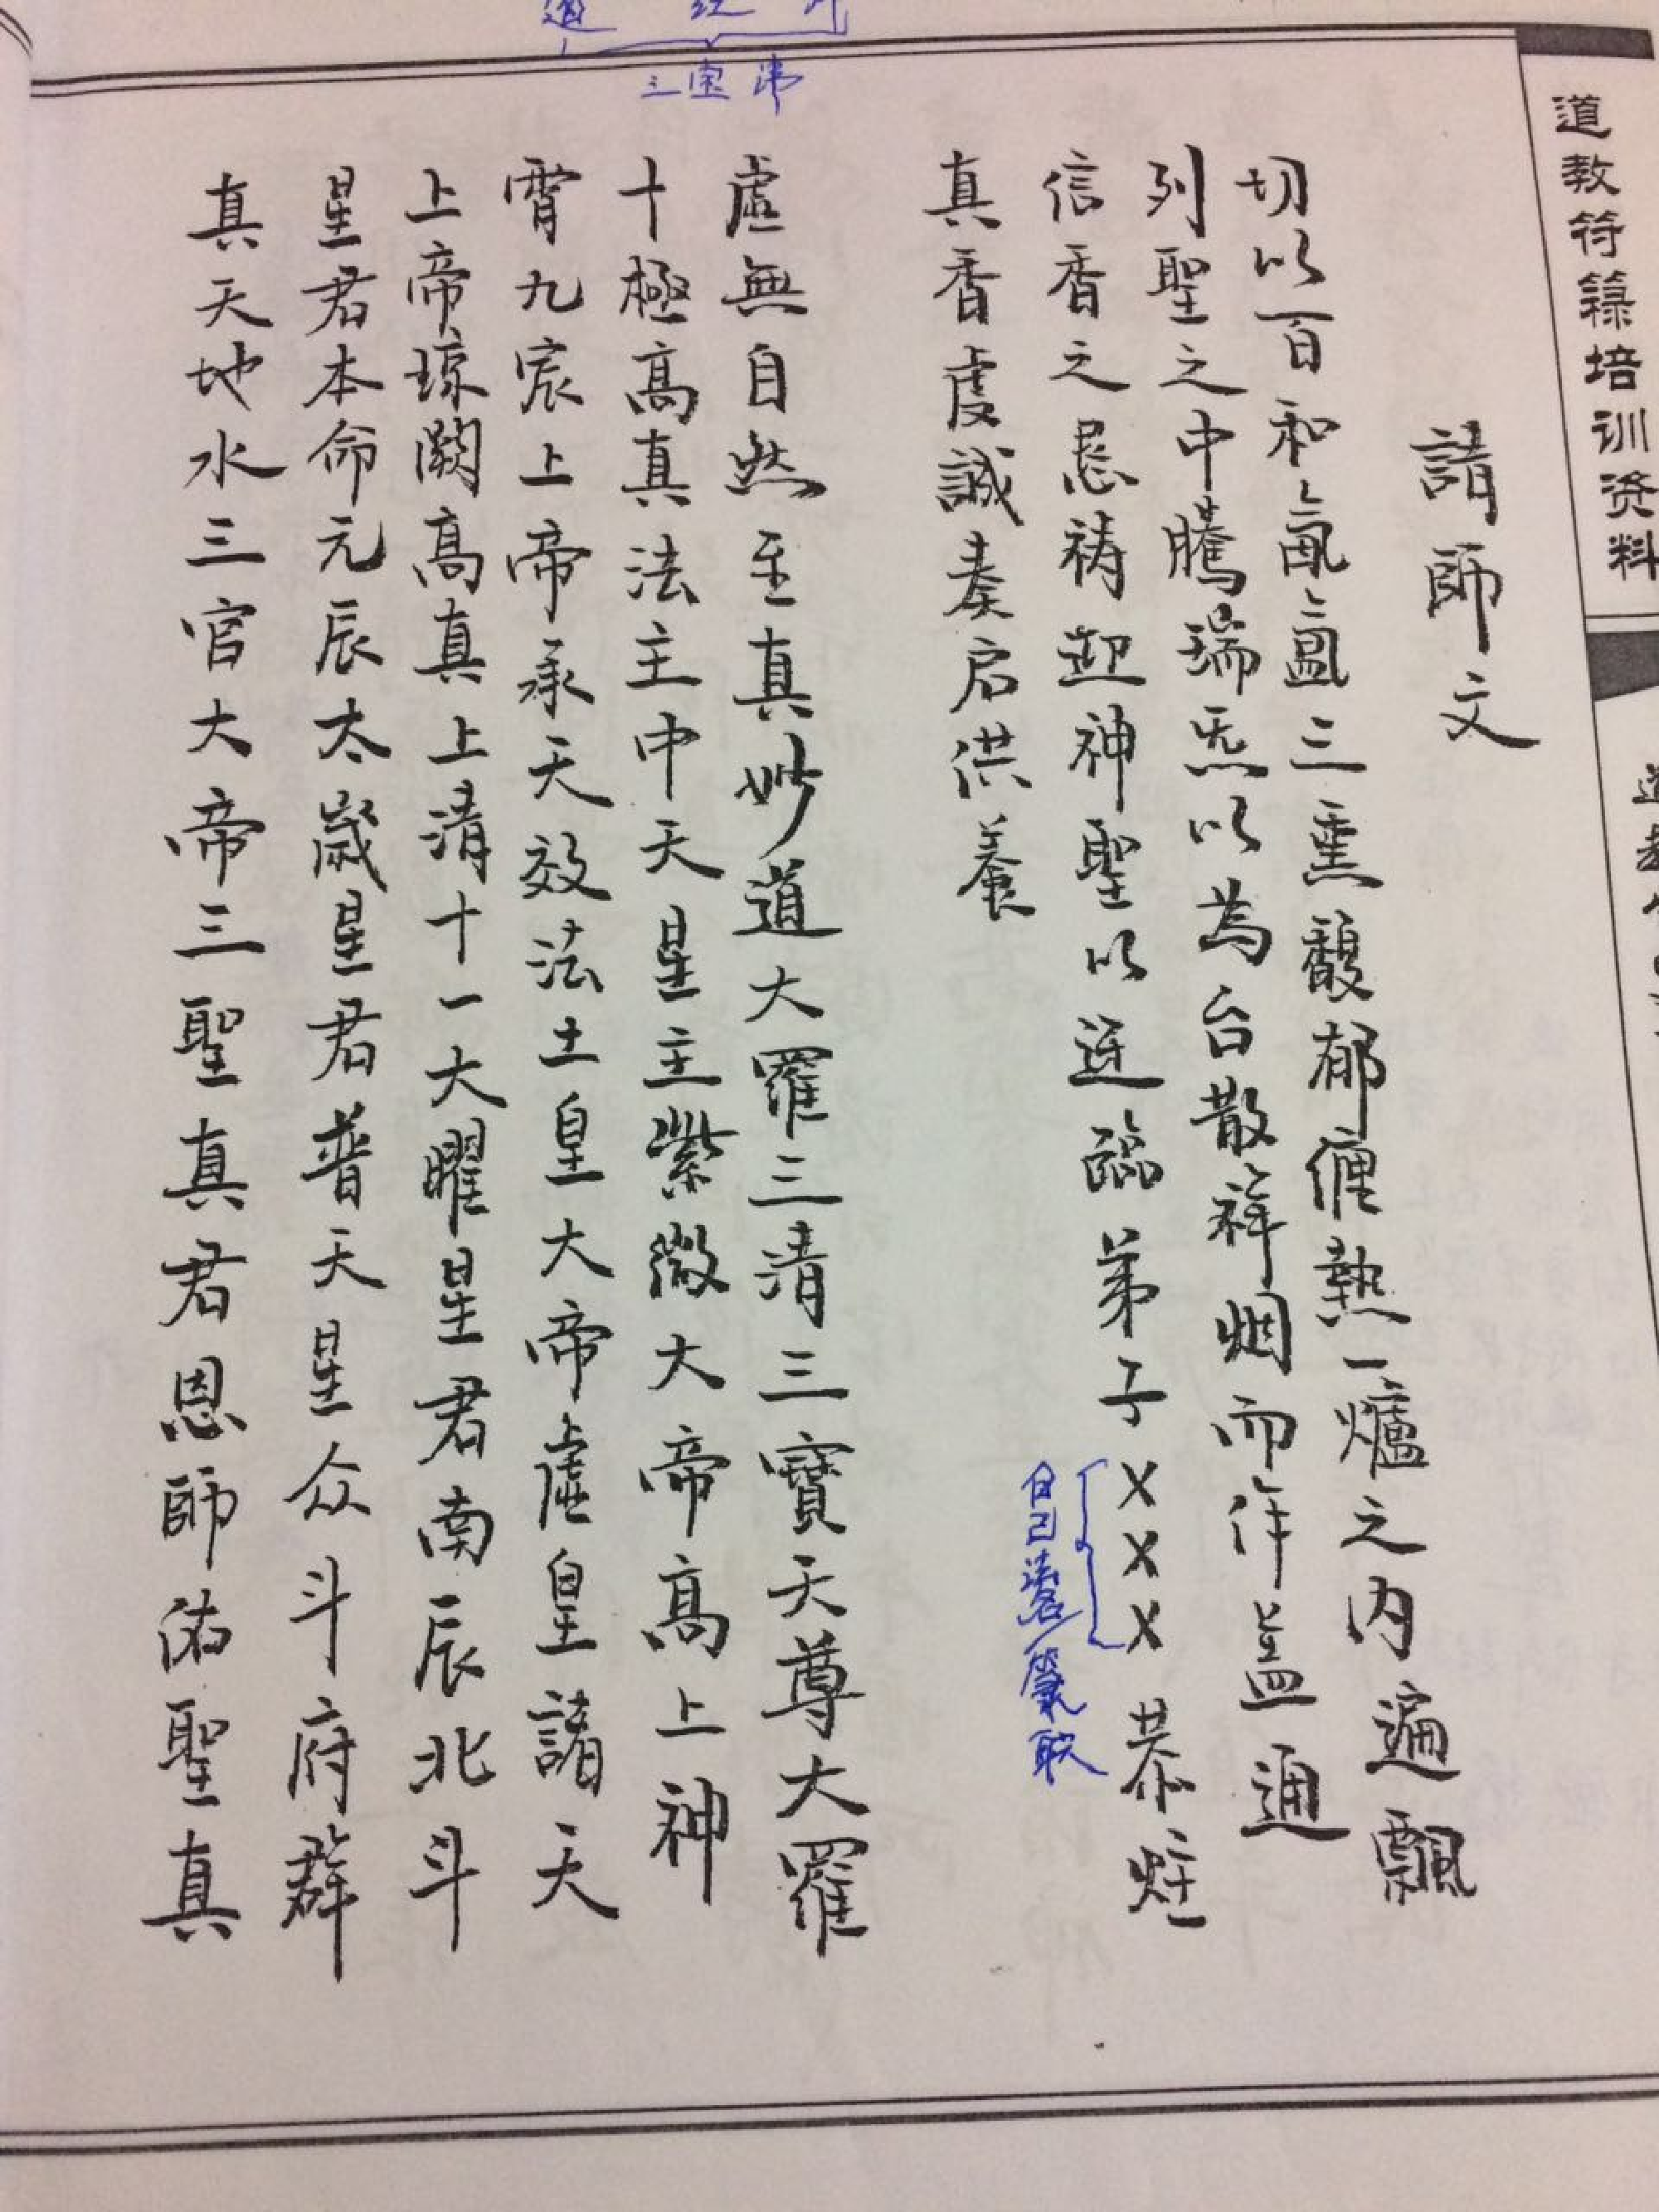 道教符籙培训资料
請師文
切以百和氤氳三熏馥郁㕓熱一爐之内遍飄
列聖之中騰瑞炁以為台散祥烟而作盖通
信香之恳祷迎神聖以迓臨弟子XXX恭炷
真香虔誠奏启洪養
虛無自然至真妙道大羅三清三寶天尊大羅
十極高真法主中天星主紫微大帝高上神
霄九宸上帝承天效法土皇大帝虛皇諸天
上帝琼闕高真上清十一大曜星君南辰北斗
星君本命元辰太歲星君普天星众斗府群
真天地水三官大帝三聖真君恩師佑聖真
自己法名/籙职
道
三宝